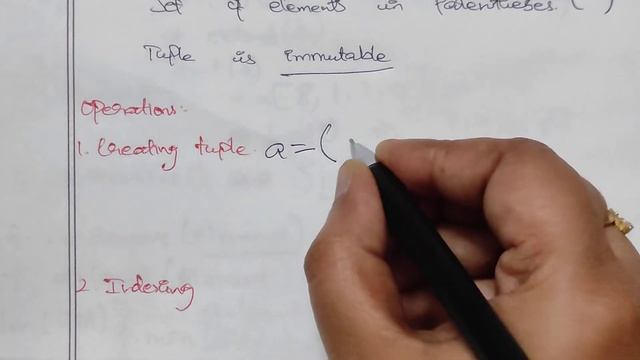 Set of elements in Parentheses ( )
Tuple is immutable
Operations:-
1. Creating tuple a=(
2 Indexing